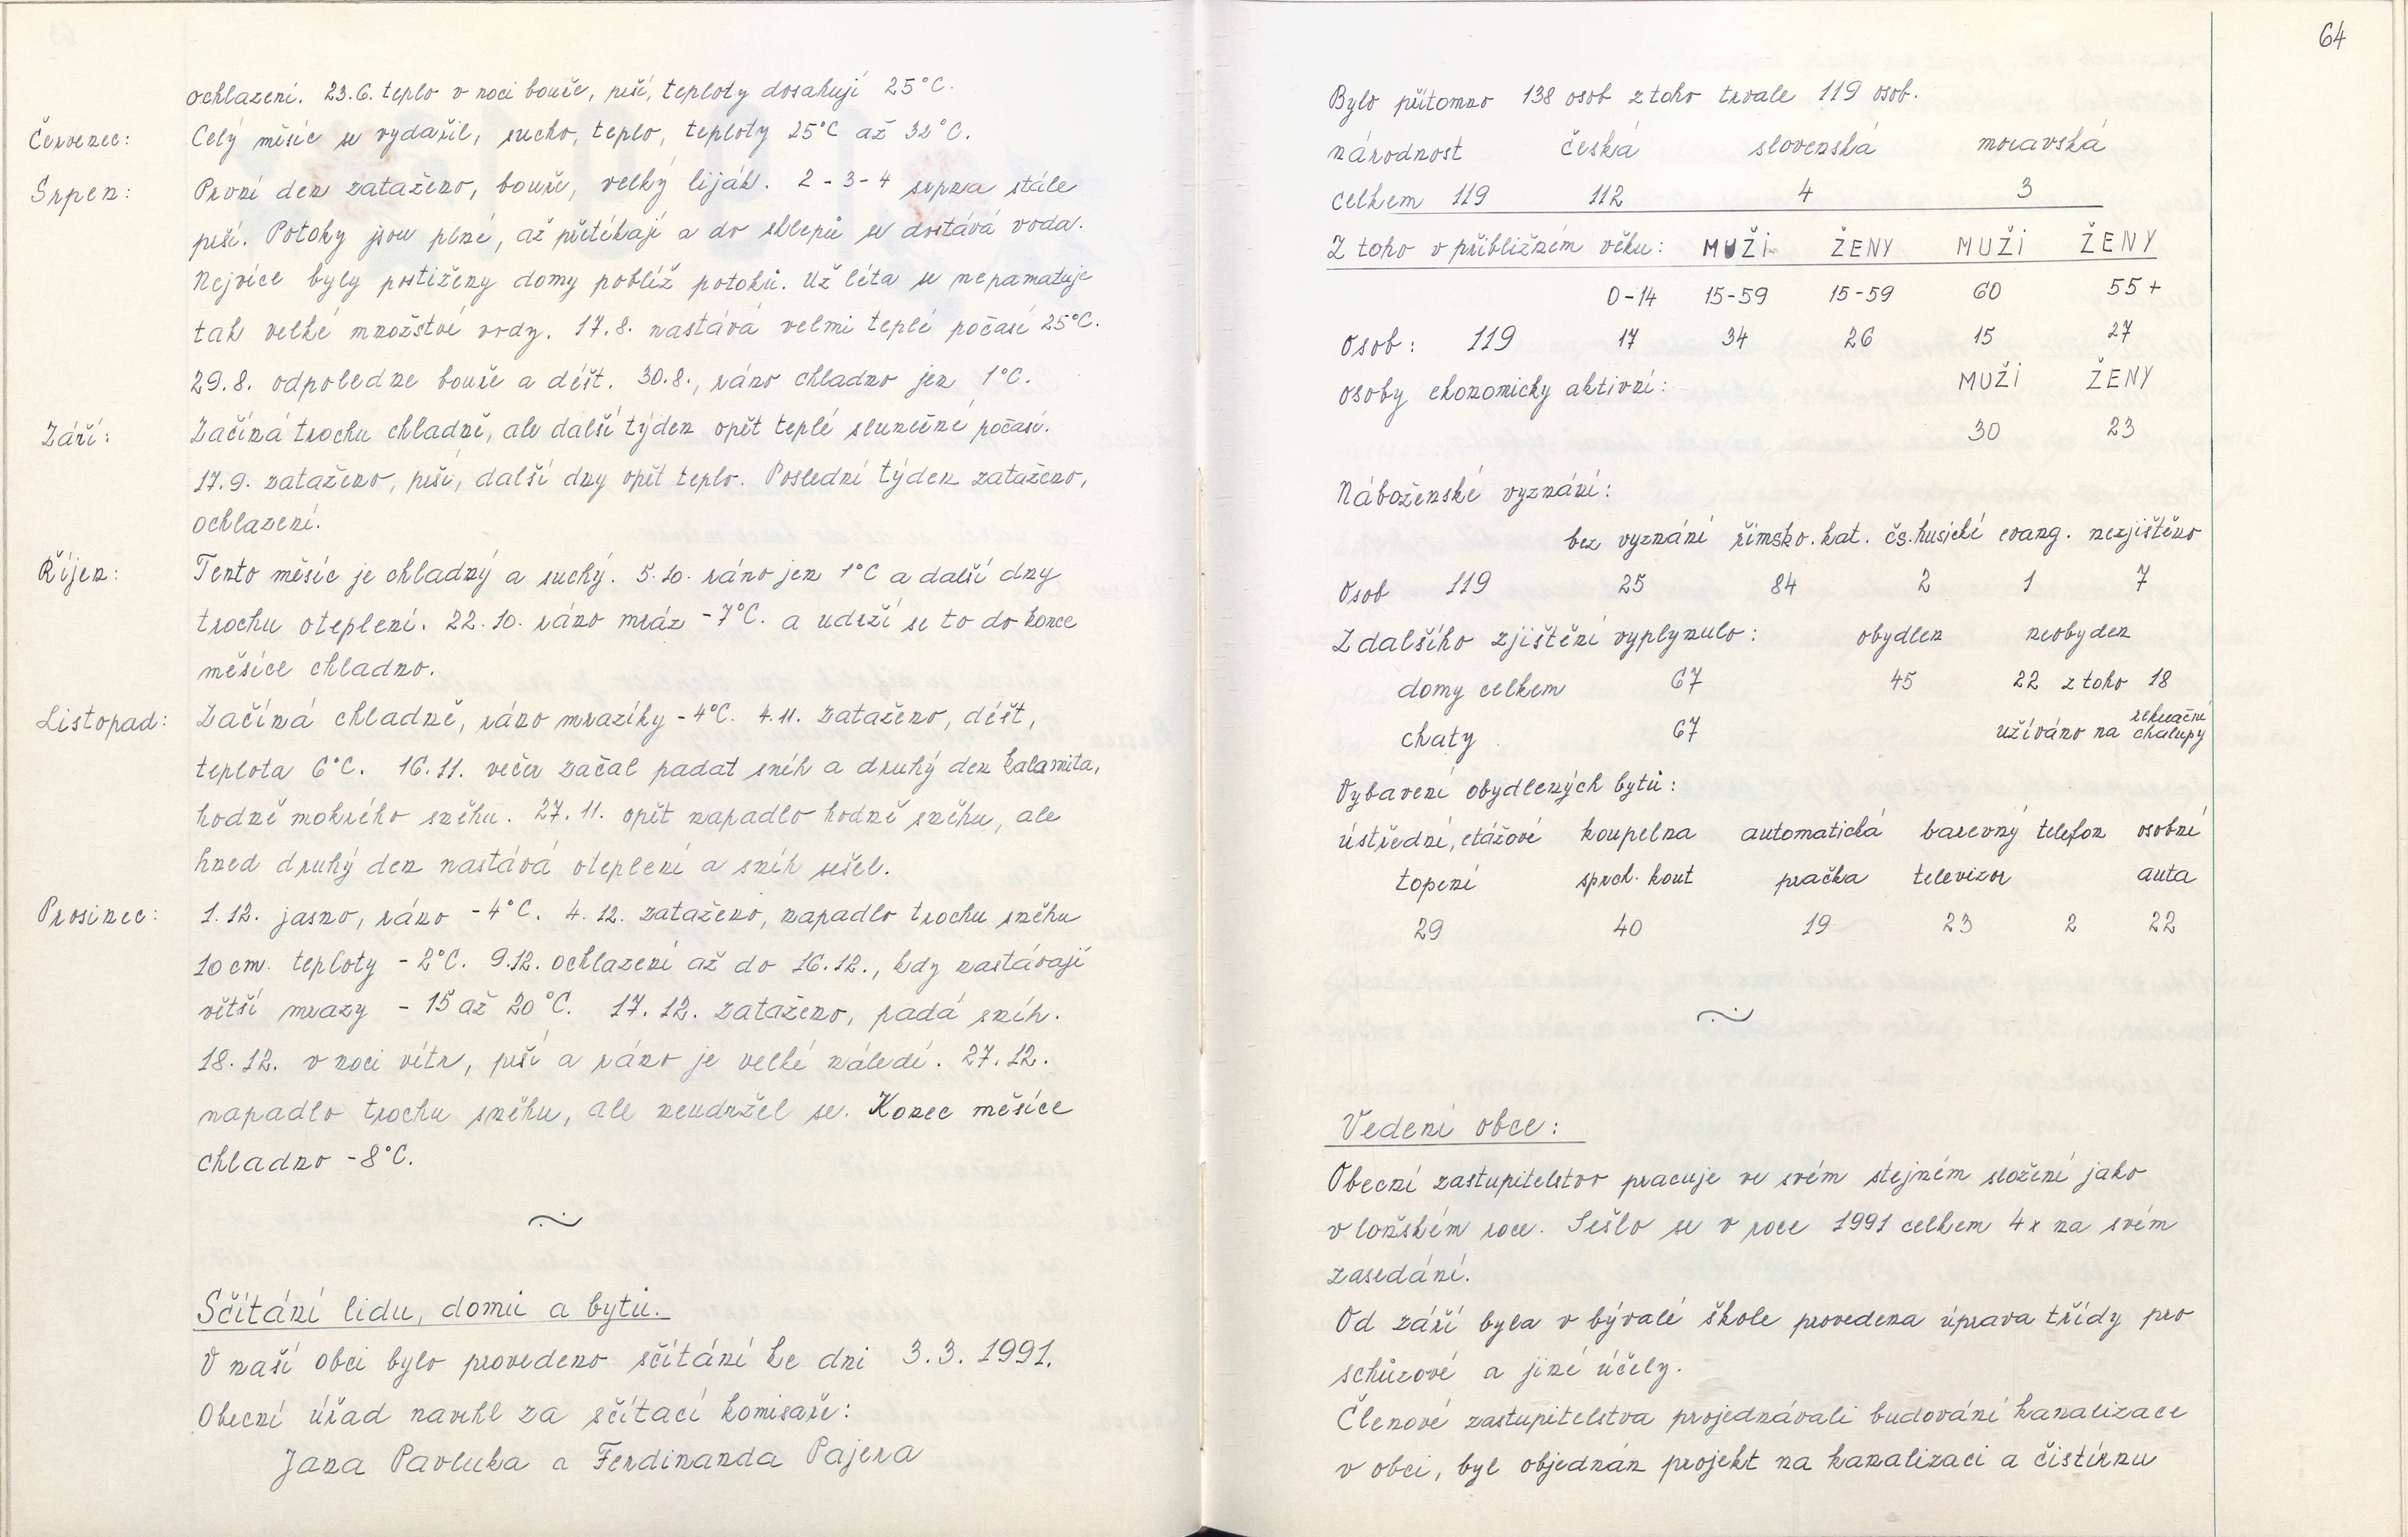 ochlazení. 23.6. teplo v noci bouře, prší, teploty dosahují 25°C.
Červenec: Celý měsíc se vydařil, sucho, teplo, teploty 25°C až 32°C.
Srpen: První den zataženo, bouře, velký liják. 2-3-4 srpna stále
prší. Potoky jsou plné, až přetékají a do sklepů se dostává voda.
Nejvíce byly postiženy domy poblíž potoků. Už léta se nepamatuje
tak velké množství vody. 17.8. nastává velmi teplé počasí 25°C.
29.8. odpoledne bouře a déšt. 30.8., ráno chladno jen 1°C.
Září: Začíná trochu chladně, ale další týden opět teplé slunečné počasí.
17.9. zataženo, prší, další dny opět teplo. Poslední týden zataženo,
ochlazení.
Říjen: Tento měsíc je chladný a suchý. 5.10. ráno jen 1°C a další dny
trochu oteplení. 22.10. ráno mráz -7°C. a udrží se to do konce
měsíce chladno.
Listopad: Začíná chladně, ráno mrazíky -4°C. 4.11. Zataženo, déšt,
teplota 6°C. 16.11. večer začal padat sníh a druhý den kalamita,
hodně mokrého sněhu. 27.11. opět napadlo hodně sněhu, ale
hned druhý den nastává oteplení a sníh sešel.
Prosinec: 1.12. jasno, ráno -4°C. 4.12. zataženo, napadlo trochu sněhu
10 cm. teploty -2°C. 9.12. ochlazení až do 16.12., kdy nastávají
větší mrazy - 15 až 20°C. 17.12. zataženo, padá sníh.
18.12. v noci vítr, prší a ráno je velké náledí. 27.12.
napadlo trochu sněhu, ale neudržel se. Konec měsíce
chladno -8°C.
Sčítání lidu, domů a bytů.
V naší obci bylo provedeno sčítání ke dni 3.3. 1991.
Obecní úřad navrhl za sčítací komisaře:
Jana Pavluka a Ferdinanda Pajera
64
Bylo přítomno 138 osob z toho trvale 119 osob.
národnost česká slovenská moravská
celkem 119 112 4 3
Z toho v přibližném věku: MUŽI ŽENY MUŽI ŽENY
0-14 15-59 15-59 60 55+
Osob: 119 17 34 26 15 27
osoby ekonomicky aktivní: MUŽI ŽENY
30 23
Náboženské vyznání:
bez vyznání římsko.kat. čs.husické evang. nezjištěno
Osob 119 25 84 2 1 7
Z dalšího zjištění vyplynulo: obydlen neobyden
domy celkem 67 45 22 z toho 18
chaty 67 užíváno na rekreační chalupy
Vybavení obydlených bytů:
ústřední, etážové koupelna automatická barevný telefon osobní
topení sprch. kout pračka televizor auta
29 40 19 23 2 22
Vedení obce:
Obecní zastupitelstvo pracuje ve svém stejném složení jako
v loňském roce. Sešlo se v roce 1991 celkem 4x na svém
zasedání.
Od září byla v bývalé škole provedena úprava třídy pro
schůzové a jiné účely.
Členové zastupitelstva projednávali budování kanalizace
v obci, byl objednán projekt na kanalizaci a čistírnu